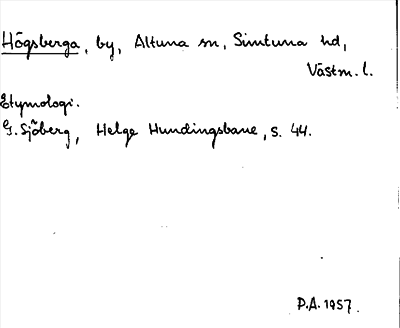 Högsberga, by, Altuna sn, Simtuna hd,
Västm. l.
Etymologi.
G. Sjöberg, Helge Hundingsbane, s. 44.
P.A. 1957.